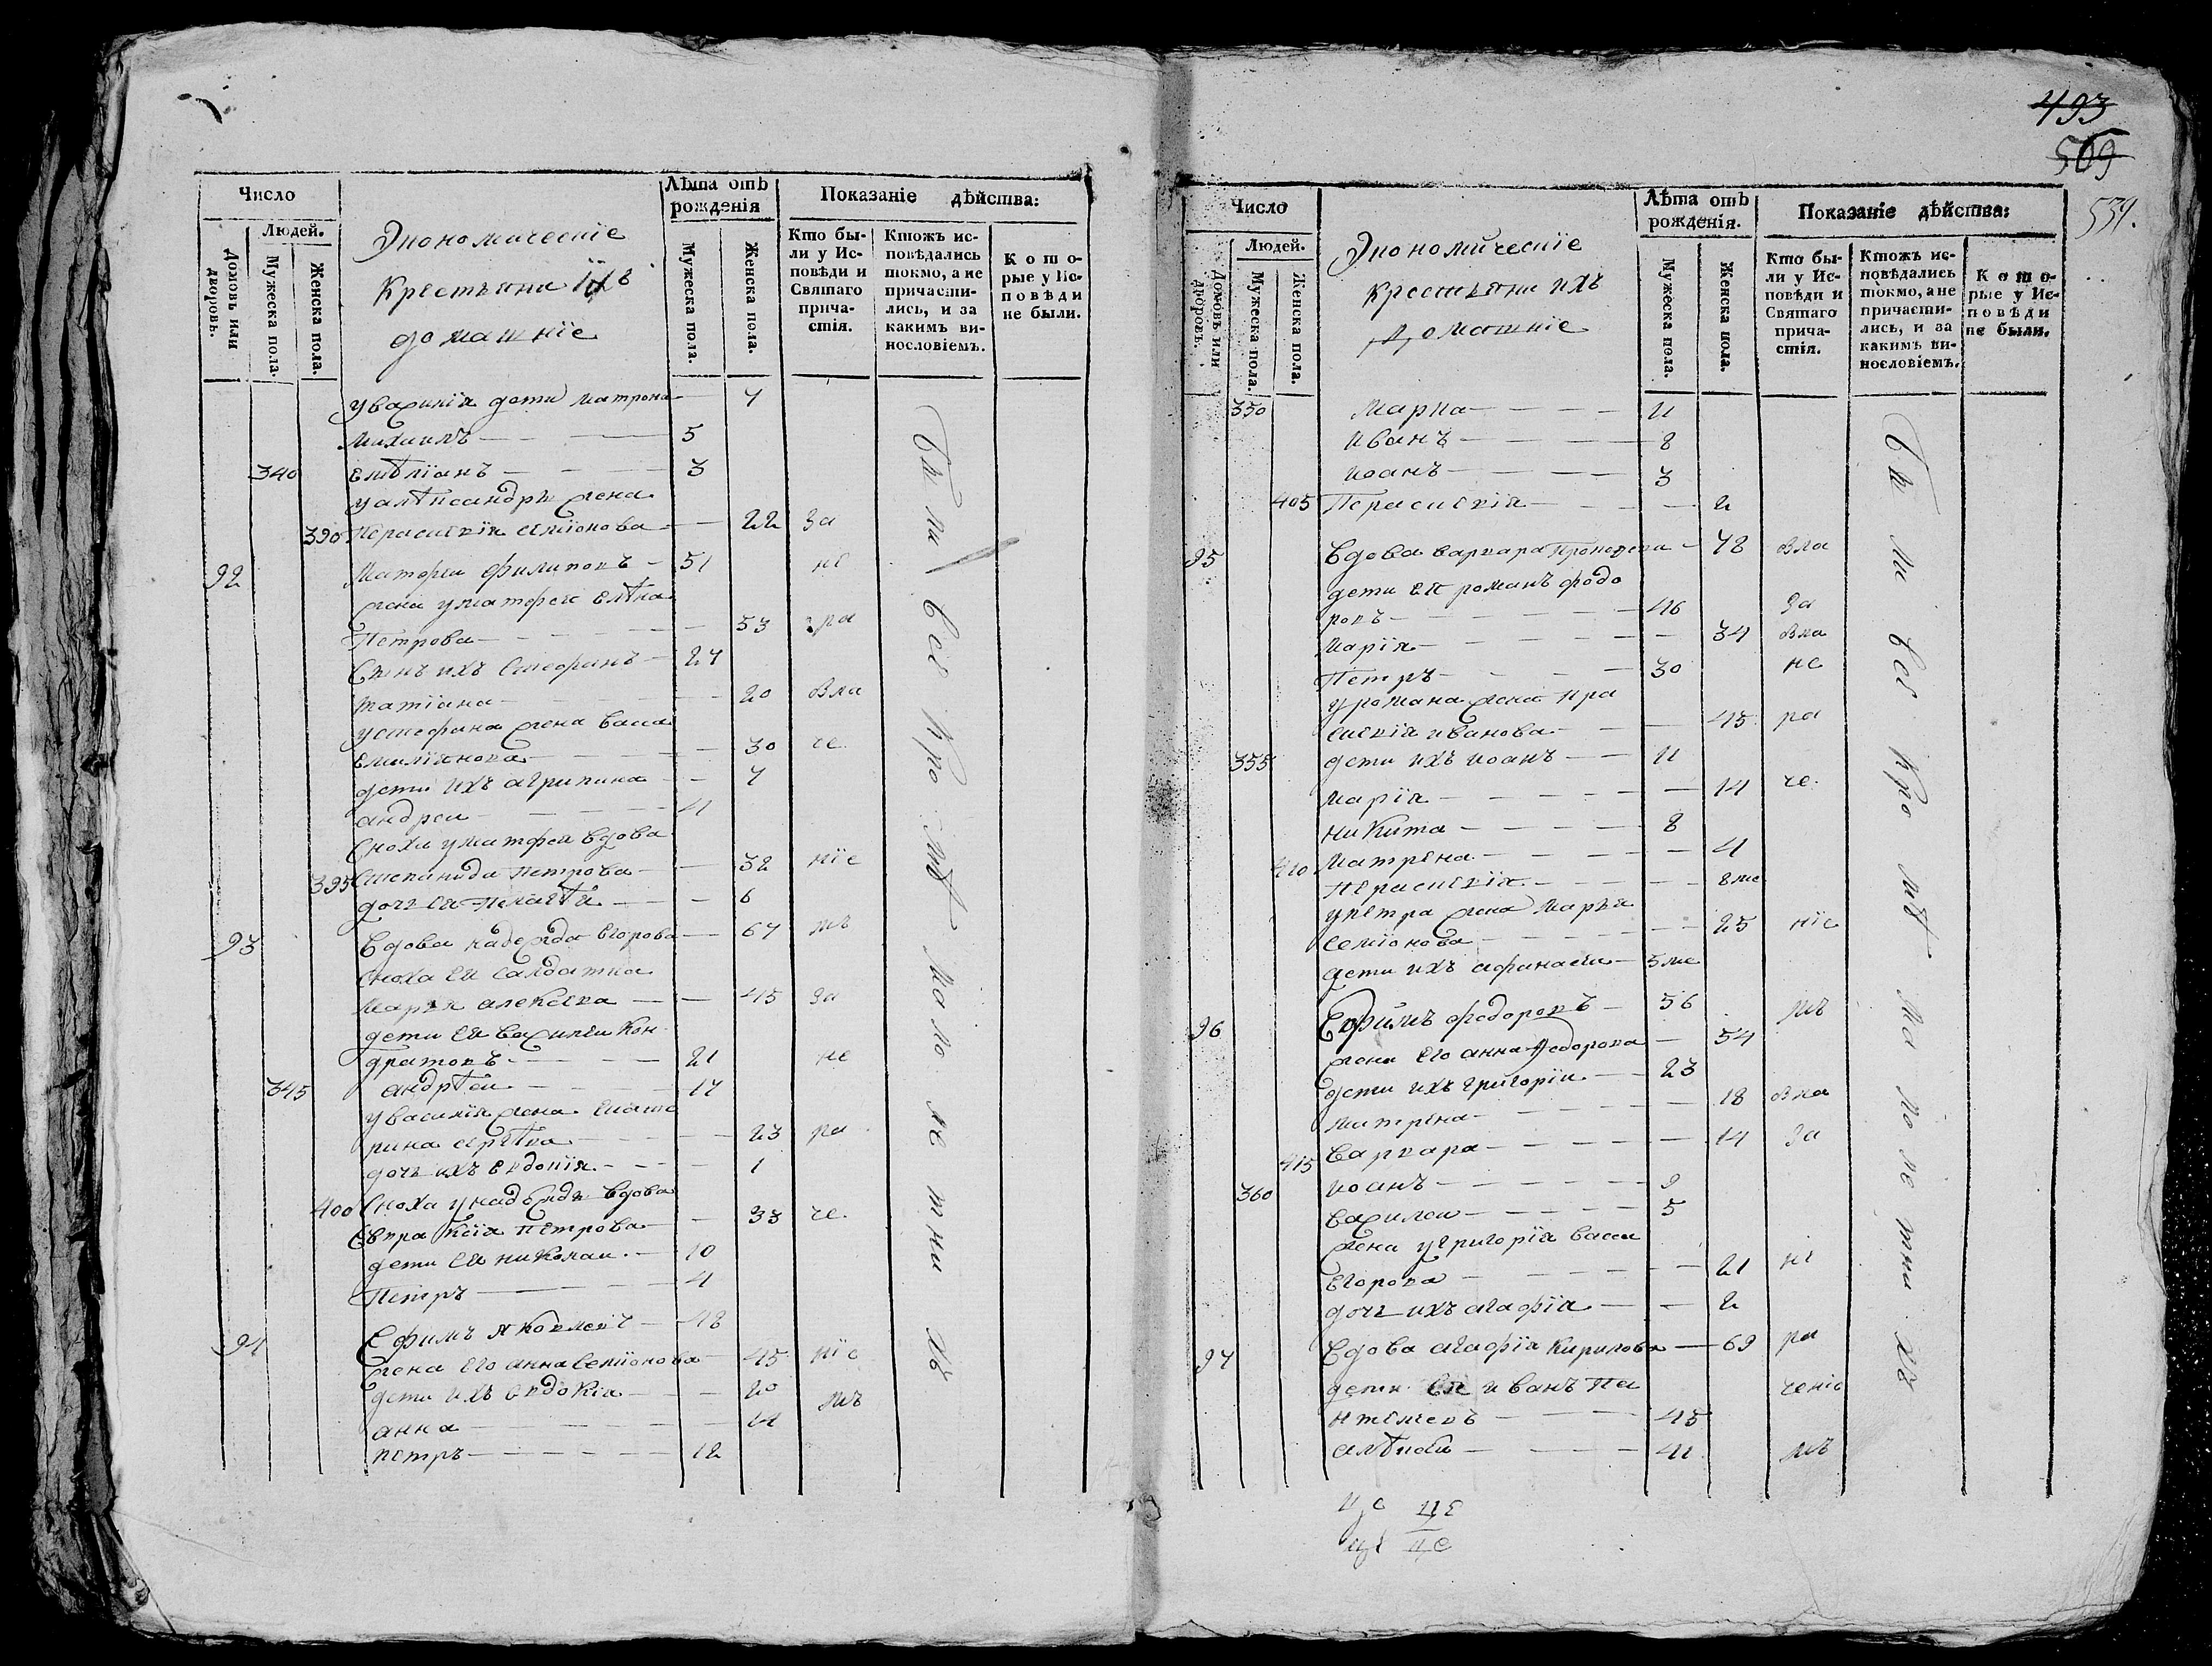 Число
Людей.
Домовъ или дворовъ.
Мужеска пола.
Женска пола.
Экономическіе
Крестьяни ихъ
домашніе
Лѣта отъ рожденія
Мужеска пола.
Женска пола.
Показаніе дѣйства:
Кто бы-
ли у Ис-
повѣди и
Святаго
прича-
стія.
Ктожъ ис-
повѣдались
токмо, а не
причасти-
лись, и за
какимъ ви-
нословіемъ.
Кото-
рые у Ис-
повѣди
не были.
дети матрона 7
михаилъ 5
340 емѣлїанъ 3
жена
390 Параскевія семіонова 22 за
92 Матфеи филиповъ 51 не
жена уматфея елѣна
Петрова 53 ра
Сынъ ихъ Стефанъ 27
татіана 20 вма
устефана жена васса
емиліянова 30 че
дети ихъ агрипина 7
андреи 4
Сноха уматфея вдова
395 Степанида петрова 32 ніе
дочь ея пелагѣя 6
93 Вдова надежда егорова 67 мъ
Сноха ея салдатка
Марья алексѣва 45 за
дети ея василеи кон
дратовъ 21 не
345 андрѣи 17
увасилія жена екате
рина 23 ра
дочь ихъ евдокия 1
400 Сноха унадежди вдова
Евпраксія петрова 33 че
дети ея николаи 10
Петръ 4
94 Ефимъ яковлевъ 48
жена его анна семіонова 45 ніе
дети ихъ евдокія 20 мъ
анна 14
петръ 12
Были всѣ кромѣ малолетнихъ
493
569
539.
Число
Людей.
Домовъ или дворовъ.
Мужеска пола.
Женска пола.
Экономическіе
крестьяни ихъ
домашніе
Лѣта отъ рожденія.
Мужеска пола.
Женска пола.
Показаніе дѣйства:
Кто бы-
ли у Ис-
повѣди и
Святаго
прича-
стія.
Ктожъ ис-
повѣдались
токмо, а не
причасти-
лись, и за
какимъ ви-
нословіемъ.
Кото-
рые у Ис-
повѣди
не были.
350 Марка 11
иванъ 8
иоанъ 3
405 Параскевія 2
95 Вдова варвара 78 вма
дети ея романъ федо
ровъ 46 за
марія 34 вма
Петръ 30 не
уромана жена пра
скевія иванова 45 ра
355 дети ихъ иоанъ 11
марія 14 че
никита 8
410 матрена 4
Параскевія 8 ме
упетра жена марья
семіонова 25 ніе
дети ихъ афанасеи 5 ме
96 Ефимъ федоровъ 56 мъ
жена его анна федорова 54
дети ихъ григории 23
матрена 18 вма
415 Варвара 14 за
360 иоанъ 9
василеи 5
жена угригорія васса
егорова 21 не
дочь ихъ агафія 2
97 Вдова агафія кирилова 69 ра
дети ея иванъ па
нтелеевъ 45 чение
алѣксѣи 41 мъ
Были всѣ кромѣ малолетнихъ